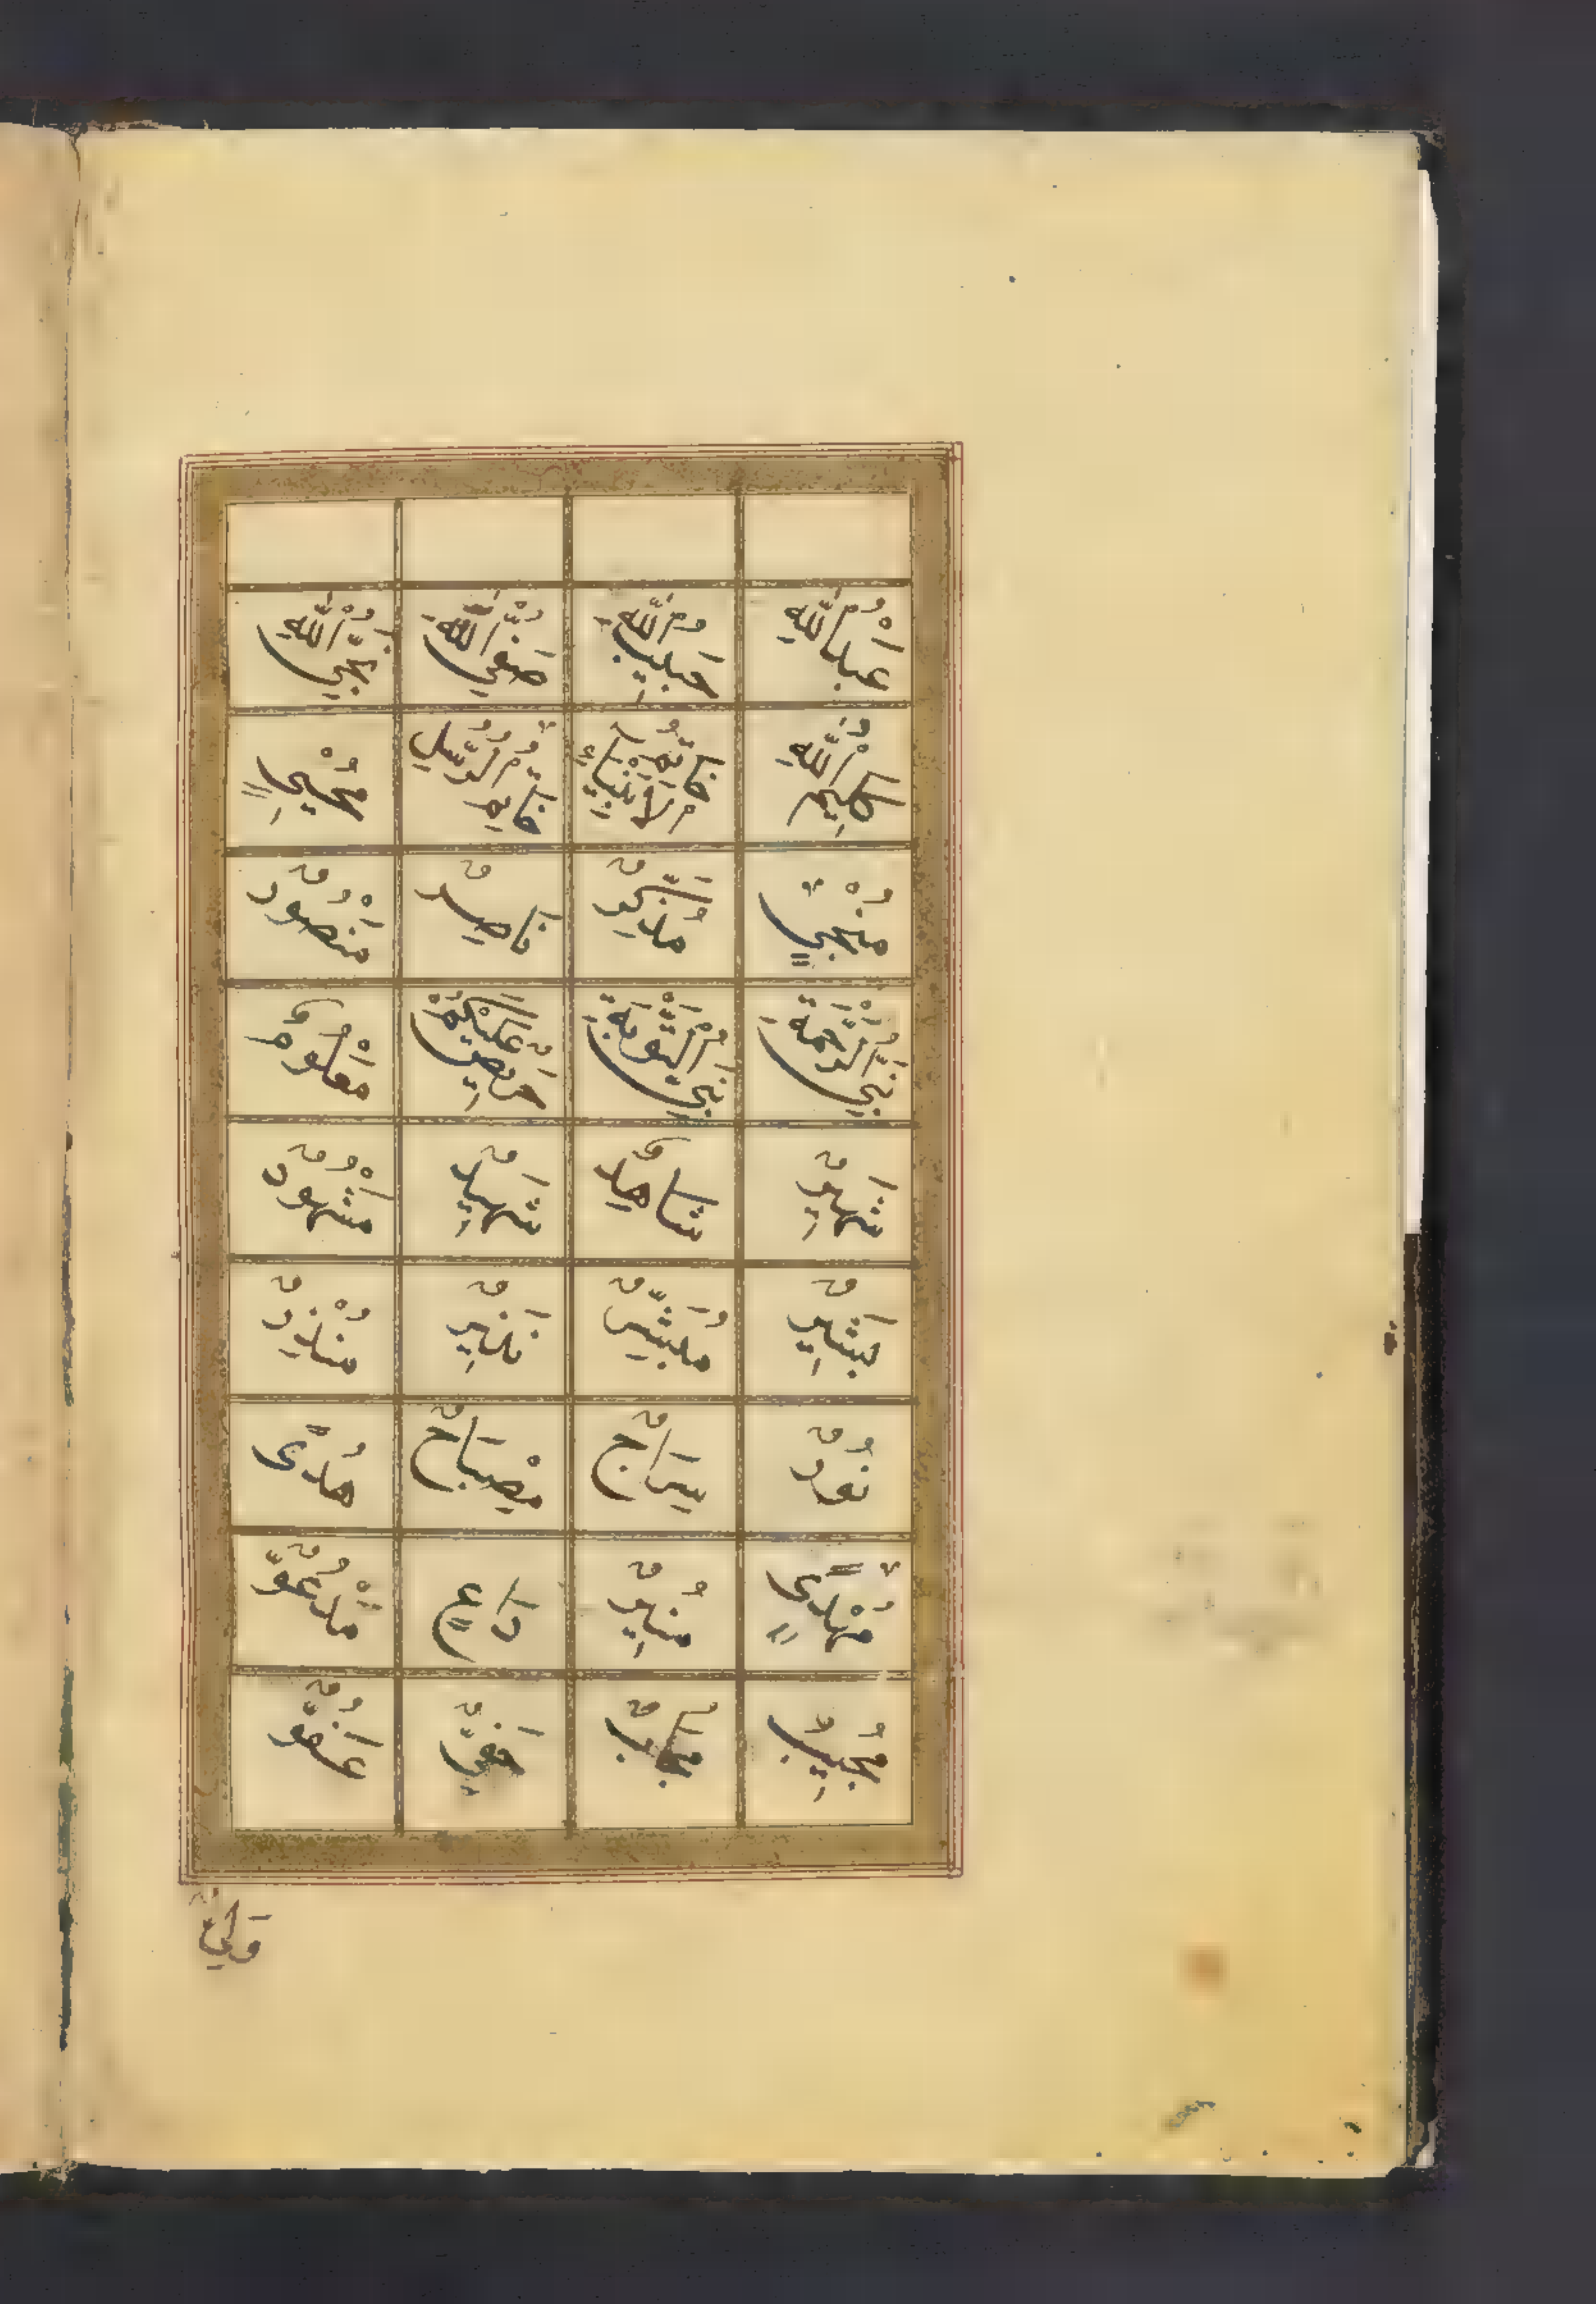 عَبْدُ اللّٰهِ حَبِيبُ اللّٰهِ صَفِيُّ اللّٰهِ نَجِيُّ اللّٰهِ
كَلِيمُ اللّٰهِ خَاتَمُ الْأَنْبِيَاءِ خَاتَمُ الرُّسُلِ مُحْيِيٍ
مُنْجِيٍ مُذَكِّرٌ نَاصِرٌ مَنْصُورٌ
نَبِيُّ الرَّحْمَةِ نَبِيُّ التَّوْبَةِ حَرِيصٌ عَلَيْكُمْ مَعْلُومٌ
شَهِيرٌ شَاهِدٌ شَهِيدٌ مَشْهُودٌ
بَشِيرٌ مُبَشِّرٌ نَذِيرٌ مُنْذِرٌ
نُورٌ سِرَاجٌ مِصْبَاحٌ هُدًى
مُهْدًىٍ مُنِيرٌ دَاعٍ مَدْعُوٌّ
مُجِيبٌ مُجَابٌ حَفِيٌّ عَفُوٌّ
وَلِيٌّ